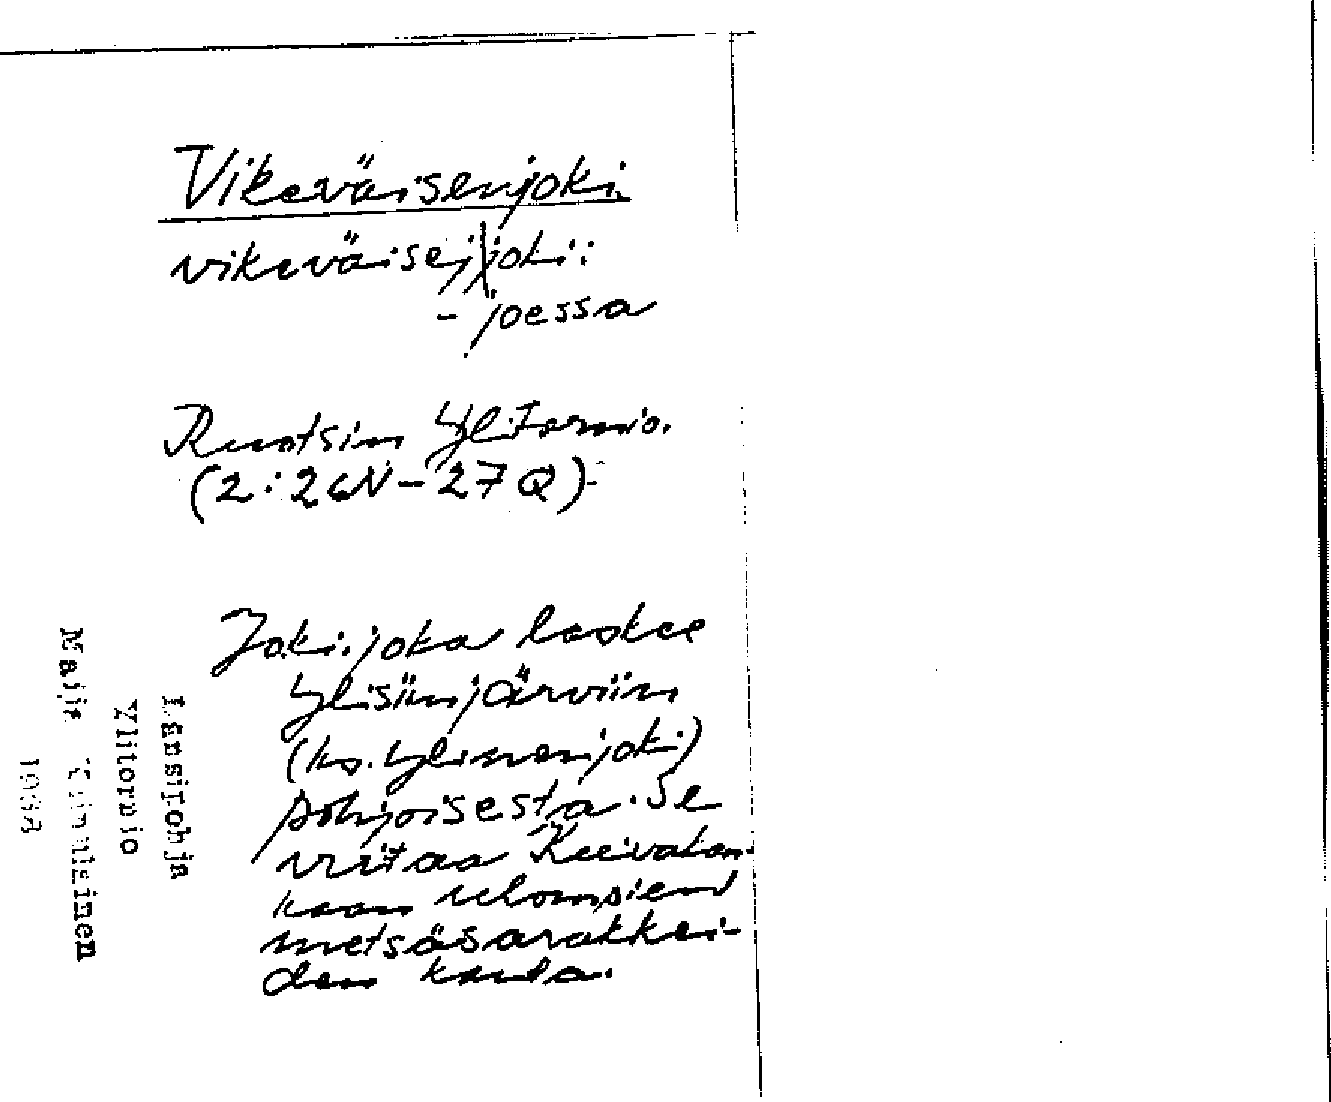 Vikeväisenjoki
vikeväisej|joki:
- joessa
Ruotsin Ylitornio.
(2:26N-27Q)
Joki, joka laskee
Ylisiinjärviin
(ks. Ylinenjoki)
pohjoisesta. Se
virtaa
kaan ulompien
metsäsarakkei-
den kautta.
Länsipohja
Ylitornio
Maija